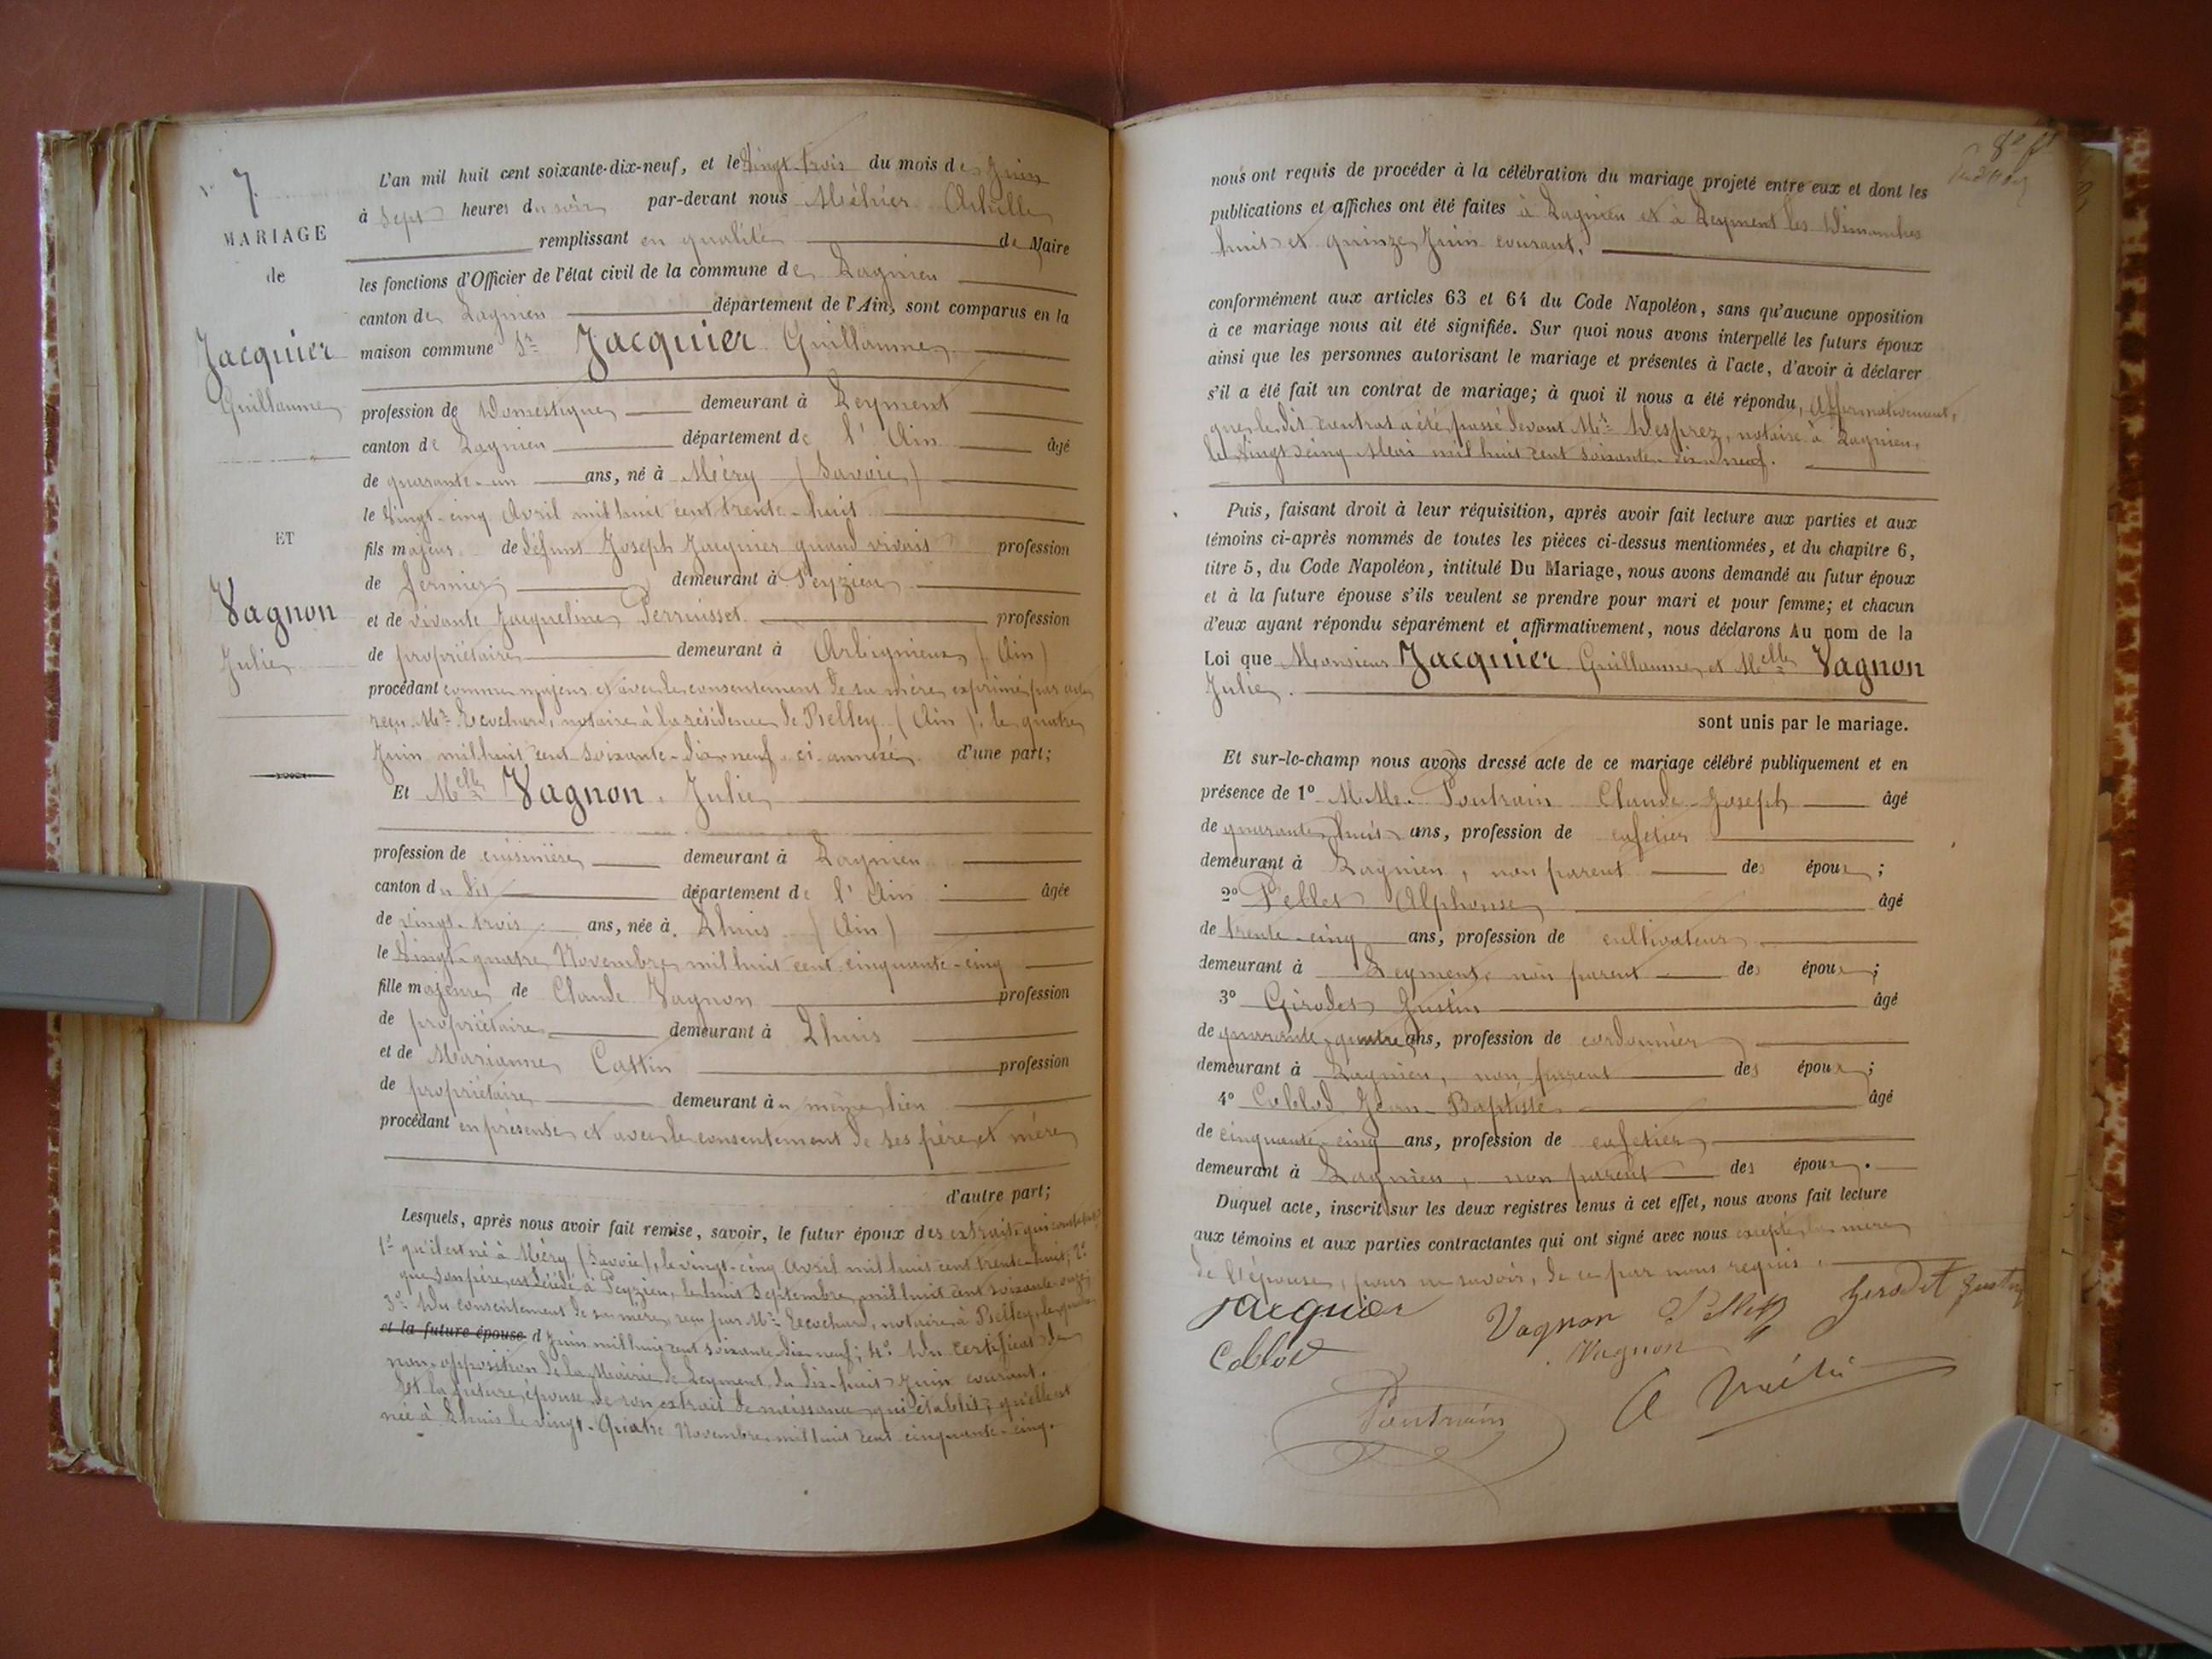 N° 7.
MARIAGE
de
Jacquier
Guillaume
ET
Vagnon
Julie
L'an mil huit cent soixante-dix-neuf, et le Vingt-trois du mois de Juin
à Sept heures du soir par-devant nous Méhier Achille
remplissant en qualité de Maire
les fonctions d'Officier de l'état civil de la commune de Lagnieu
canton de Lagnieu département de l'Ain, sont comparus en la
maison commune Sr Jacquier Guillaume
profession de Domestique demeurant à Leyment
canton de Lagnieu département de l'Ain âgé
de quarante-un ans, né à Méry (Savoie)
le Vingt-cinq Avril mil huit cent trente-huit
fils majeur de défunt Joseph Jacquier quand vivait profession
de fermier demeurant à Peyzieu
et de vivante Jacqueline Perruisset profession
de propriétaire demeurant à Arbignieux (Ain)
procédant comme majeur et avec le consentement de sa mère, exprimé par acte
reçu Me Lecochard, notaire à la résidence de Belley (Ain), le quatre
Juin mil huit cent soixante-dix-neuf ci annexé d'une part;
Et Melle Vagnon, Julie
profession de cuisinière demeurant à Lagnieu
canton du dit département de l'Ain âgée
de vingt-trois ans, née à Lhuis (Ain)
le Vingt-quatre Novembre mil huit cent cinquante-cinq
fille majeure de Claude Vagnon profession
de propriétaire demeurant à Lhuis
et de Marianne Cattin profession
de propriétaire demeurant au même lieu
procédant en présense et avec le consentement de ses père et mère
d'autre part;
Lesquels, après nous avoir fait remise, savoir, le futur époux des extraits qui constatent
1° qu'il est né à Méry (Savoie), le vingt-cinq Avril mil huit cent trente-huit; 2°
que son père est décédé à Peyzieu, le huit Septembre mil huit cent soixante-onze;
3° Du consentement de sa mère, reçu par Me Lecochard, notaire à Belley, le quatre
et la future épouse d Juin mil huit cent soixante-dix-neuf; 4° Du certificat de
non-opposition de la Mairie de Leyment du dix-huit Juin courant.
Et la future épouse de son extrait de naissance qui établit, qu'elle est
née à Lhuis le vingt-Quatre Novembre mil huit cent cinquante-cinq.
nous ont requis de procéder à la célébration du mariage projeté entre eux et dont les
publications et affiches ont été faites à Lagnieu et à Leyment les Dimanches
huit et quinze Juin courant.
conformément aux articles 63 et 64 du Code Napoléon, sans qu'aucune opposition
à ce mariage nous ait été signifiée. Sur quoi nous avons interpellé les futurs époux
ainsi que les personnes autorisant le mariage et présentes à l'acte, d'avoir à déclarer
s'il a été fait un contrat de mariage; à quoi il nous a été répondu, Affirmativement,
que le dit contrat a été passé devant Me Desprez, notaire à Lagnieu,
le Vingt-cinq Mai mil huit cent soixante-dix-neuf.
Puis, faisant droit à leur réquisition, après avoir fait lecture aux parties et aux
témoins ci-après nommés de toutes les pièces ci-dessus mentionnées, et du chapitre 6,
titre 5, du Code Napoléon, intitulé Du Mariage, nous avons demandé au futur époux
et à la future épouse s'ils veulent se prendre pour mari et pour femme; et chacun
d'eux ayant répondu séparément et affirmativement, nous déclarons Au nom de la
Loi que Monsieur Jacquier Guillaume et Melle Vagnon
Julie
sont unis par le mariage.
Et sur-le-champ nous avons dressé acte de ce mariage célébré publiquement et en
présence de 1° M.M. Poutrain Claude-Joseph âgé
de quarante-huit ans, profession de cafetier
demeurant à Lagnieu, non parent des époux;
2° Pellet Alphonse âgé
de trente-cinq ans, profession de cultivateur
demeurant à Leyment, non parent des époux;
3° Girodet Justin âgé
de quarante-quatre ans, profession de cordonnier
demeurant à Lagnieu, non parent des époux;
4° Collod Jean-Baptiste âgé
de cinquante-cinq ans, profession de cafetier
demeurant à Lagnieu, non parent des époux.
Duquel acte, inscrit sur les deux registres tenus à cet effet, nous avons fait lecture
aux témoins et aux parties contractantes qui ont signé avec nous excepté la mère
de l'épouse, pour ne savoir, de ce par nous requis.
jacquier Vagnon Pellet Girodet Justin
Collod Vagnon
Poutrain